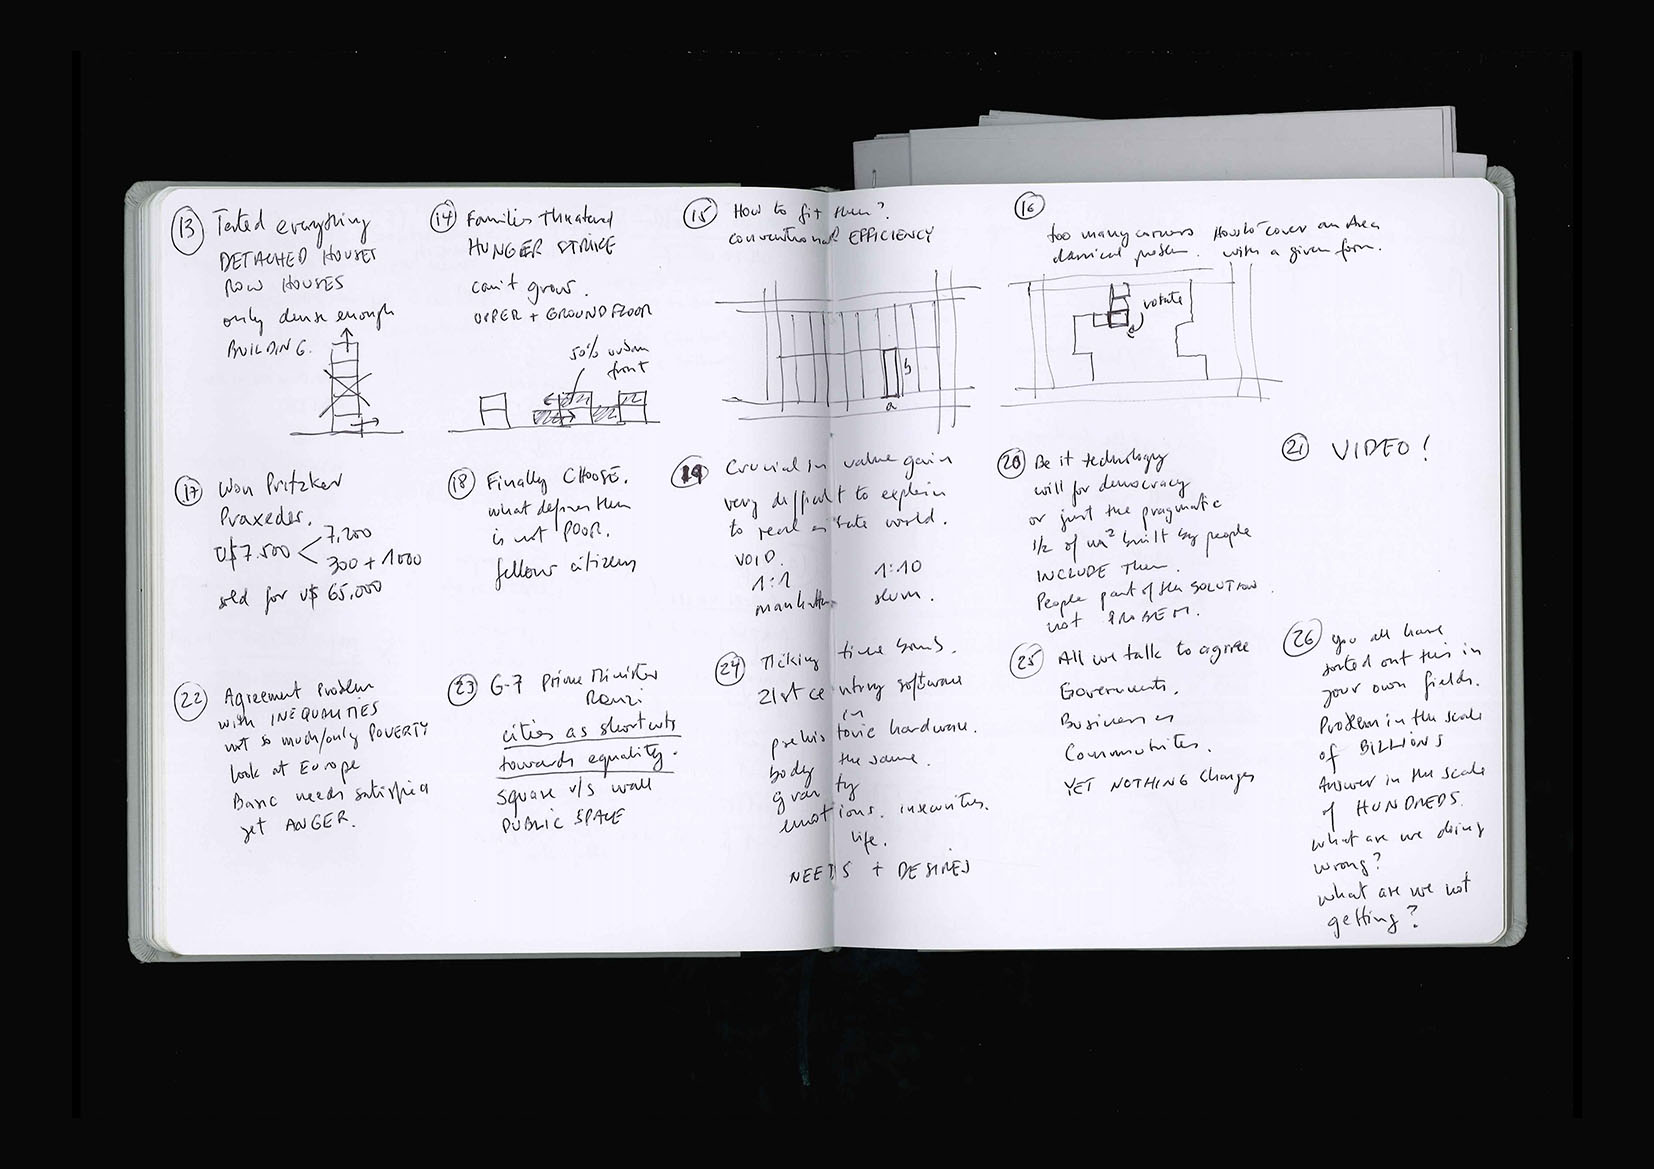 13 Tested everything
DETACHED HOUSES
ROW HOUSES
only dense enough
BUILDING.
14 Families threatened
HUNGER STRIKE
can't grow.
UPPER + GROUND FLOOR
50% urban
front
15 How to fit them?
conventional EFFICIENCY
b
a
16
too many corners
classical problem.
How to cover an area
with a given form.
rotate
17 Won Pritzker
Praxedes.
U$7.500
7,200
300 + 1000
sold for U$ 65,000
18 Finally CHOOSE.
what defines them
is not POOR.
fellow citizens
19 Crucial in value gain
very difficult to explain
to real estate world.
VOID.
1:1 1:10
manhattan slum.
20 Be it technology
will for democracy
or just the pragmatic
1/2 of m² built by people
INCLUDE Them.
People part of the SOLUTION
not PROBLEM.
21 VIDEO!
22 Agreement Problem
with INEQUALITIES
not so much/only POVERTY
look at Europe
Basic needs satisfied
yet ANGER.
23 G-7 Prime Minister
Renzi
cities as shortcuts
towards equality.
square v/s wall
PUBLIC SPACE
24 Ticking time bomb.
21st century software
in
prehistoric hardware.
body the same.
gravity
emotions. insecurities.
life.
NEEDS + DESIRES
25 All we talk to agree
Governments.
Businesses
Communities.
YET NOTHING Changes
26 you all have
sorted out this in
your own fields.
Problem in the scale
of BILLIONS
Answer in the scale
of HUNDREDS.
what are we doing
wrong?
what are we not
getting?